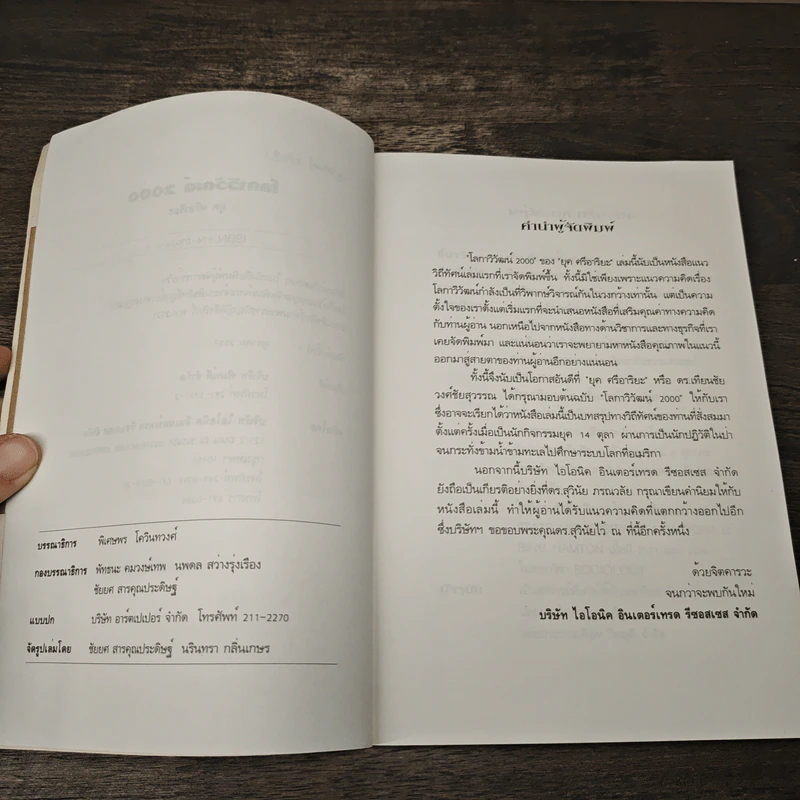 บรรณาธิการ พิเศษพร โควินทวงศ์
กองบรรณาธิการ พัทธนะ คมวงษ์เทพ นพดล สว่างรุ่งเรือง
ชัยยศ สารคุณประดิษฐ์
แบบปก บริษัท อาร์ตเปเปอร์ จำกัด โทรศัพท์ 211-2270
จัดรูปเล่มโดย ชัยยศ สารคุณประดิษฐ์ นรินทรา กลิ่นเกษร
คำนำผู้จัดพิมพ์
"โลกาวิวัฒน์ 2000" ของ "ยุค ศรีอาริยะ" เล่มนี้นับเป็นหนังสือแนว
วิถีทัศน์เล่มแรกที่เราจัดพิมพ์ขึ้น ทั้งนี้มิใช่เพียงเพราะแนวความคิดเรื่อง
โลกาวิวัฒน์กำลังเป็นที่วิพากษ์วิจารณ์กันในวงกว้างเท่านั้น แต่เป็นความ
ตั้งใจของเราตั้งแต่เริ่มแรกที่จะนำเสนอหนังสือที่เสริมคุณค่าทางความคิด
กับท่านผู้อ่าน นอกเหนือไปจากหนังสือทางด้านวิชาการและทางธุรกิจที่เรา
เคยจัดพิมพ์มา และแน่นอนว่าเราจะพยายามหาหนังสือคุณภาพในแนวนี้
ออกมาสู่สายตาของท่านผู้อ่านอีกอย่างแน่นอน
ทั้งนี้จึงนับเป็นโอกาสอันดีที่ "ยุค ศรีอาริยะ" หรือ ดร.เทียนชัย
วงศ์ชัยสุวรรณ ได้กรุณามอบต้นฉบับ "โลกาวิวัฒน์ 2000" ให้กับเรา
ซึ่งอาจจะเรียกได้ว่าหนังสือเล่มนี้เป็นบทสรุปทางวิถีทัศน์ของท่านที่สั่งสมมา
ตั้งแต่ครั้งเมื่อเป็นนักกิจกรรมยุค 14 ตุลา ผ่านการเป็นนักปฏิวัติในป่า
จนกระทั่งข้ามน้ำข้ามทะเลไปศึกษาระบบโลกที่อเมริกา
นอกจากนี้บริษัท ไอโอนิค อินเตอร์เทรด รีซอสเซส จำกัด
ยังถือเป็นเกียรติอย่างยิ่งที่ดร.สุวินัย ภรณวลัย กรุณาเขียนคำนิยมให้กับ
หนังสือเล่มนี้ ทำให้ผู้อ่านได้รับแนวความคิดที่แตกกว้างออกไปอีก
ซึ่งบริษัทฯ ขอขอบพระคุณดร.สุวินัยไว้ ณ ที่นี้อีกครั้งหนึ่ง
ด้วยจิตคารวะ
จนกว่าจะพบกันใหม่
บริษัท ไอโอนิค อินเตอร์เทรด รีซอสเซส จำกัด